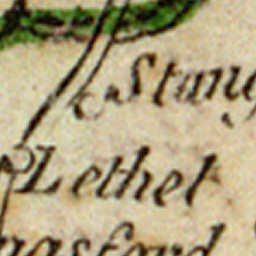 Stany
Lethel
ngsford